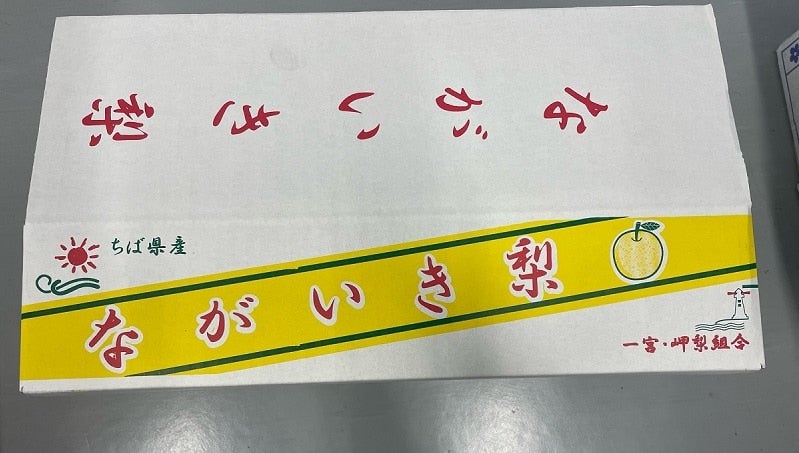 ながいき梨
ちば県産
ながいき梨
一宮・岬梨組合